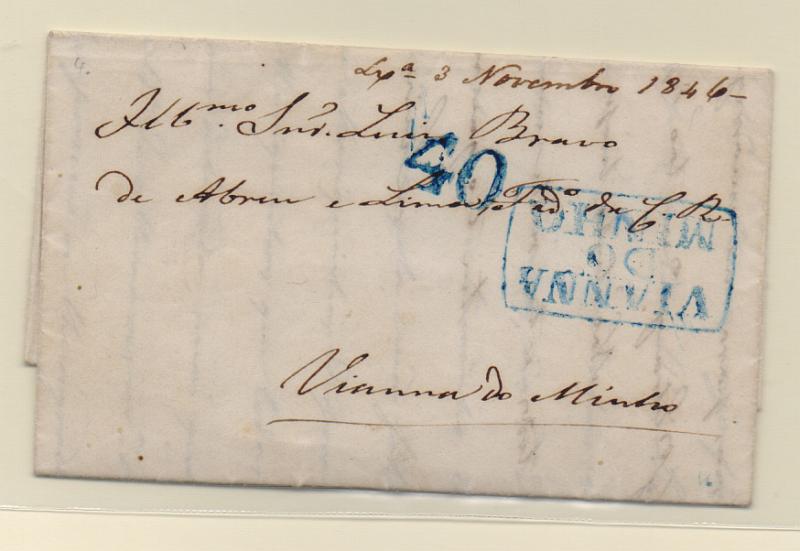 Lxa 3 Novembro 1846
Illmo. Snr. Luis Bravo
40
de Abreu e Lima, Fado. da C R.
VIANNA
DO
MINHO
Vianna do Minho